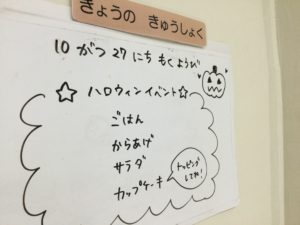 きょうの きゅうしょく
10 がつ 27 にち もくようび
☆ ハロウィンイベント☆
ごはん
からあげ
サラダ
カップケーキ
トッピング
してね!